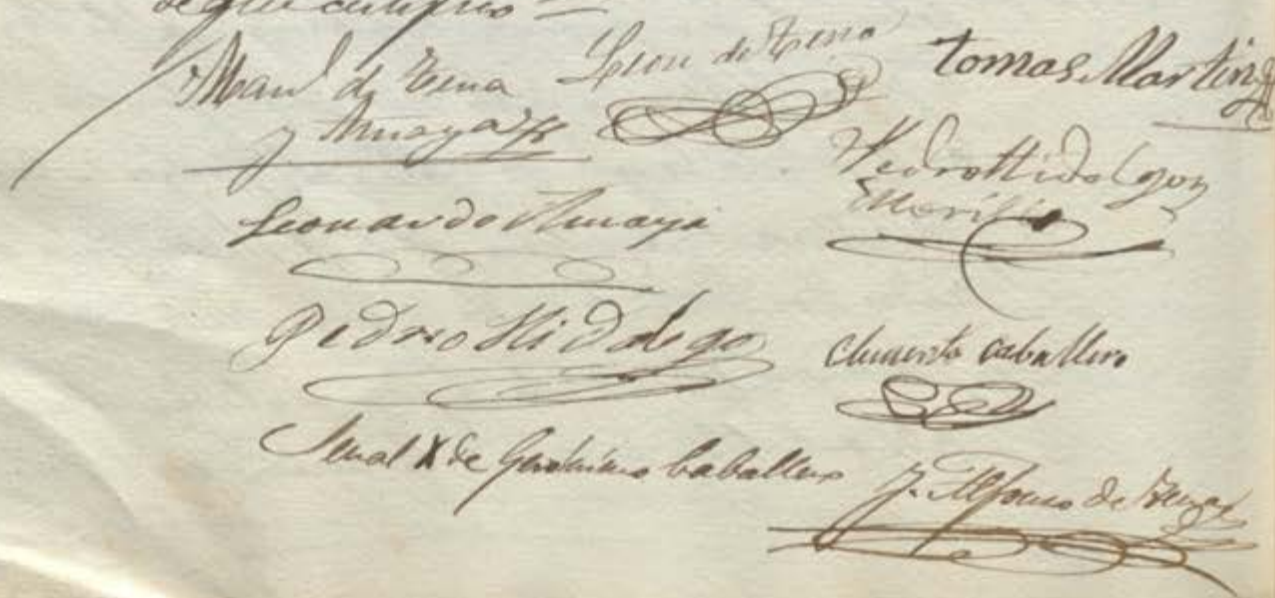 de que certifico =
Man.l de Tena
y Amaya
Leon de Tena
Tomas Martin
Pedro Hidalgo y
Leonardo Amaya
Pedro Hidalgo
Clemente caballero
Señal X de Geronimo Caballero
J. Alfonso de Tena